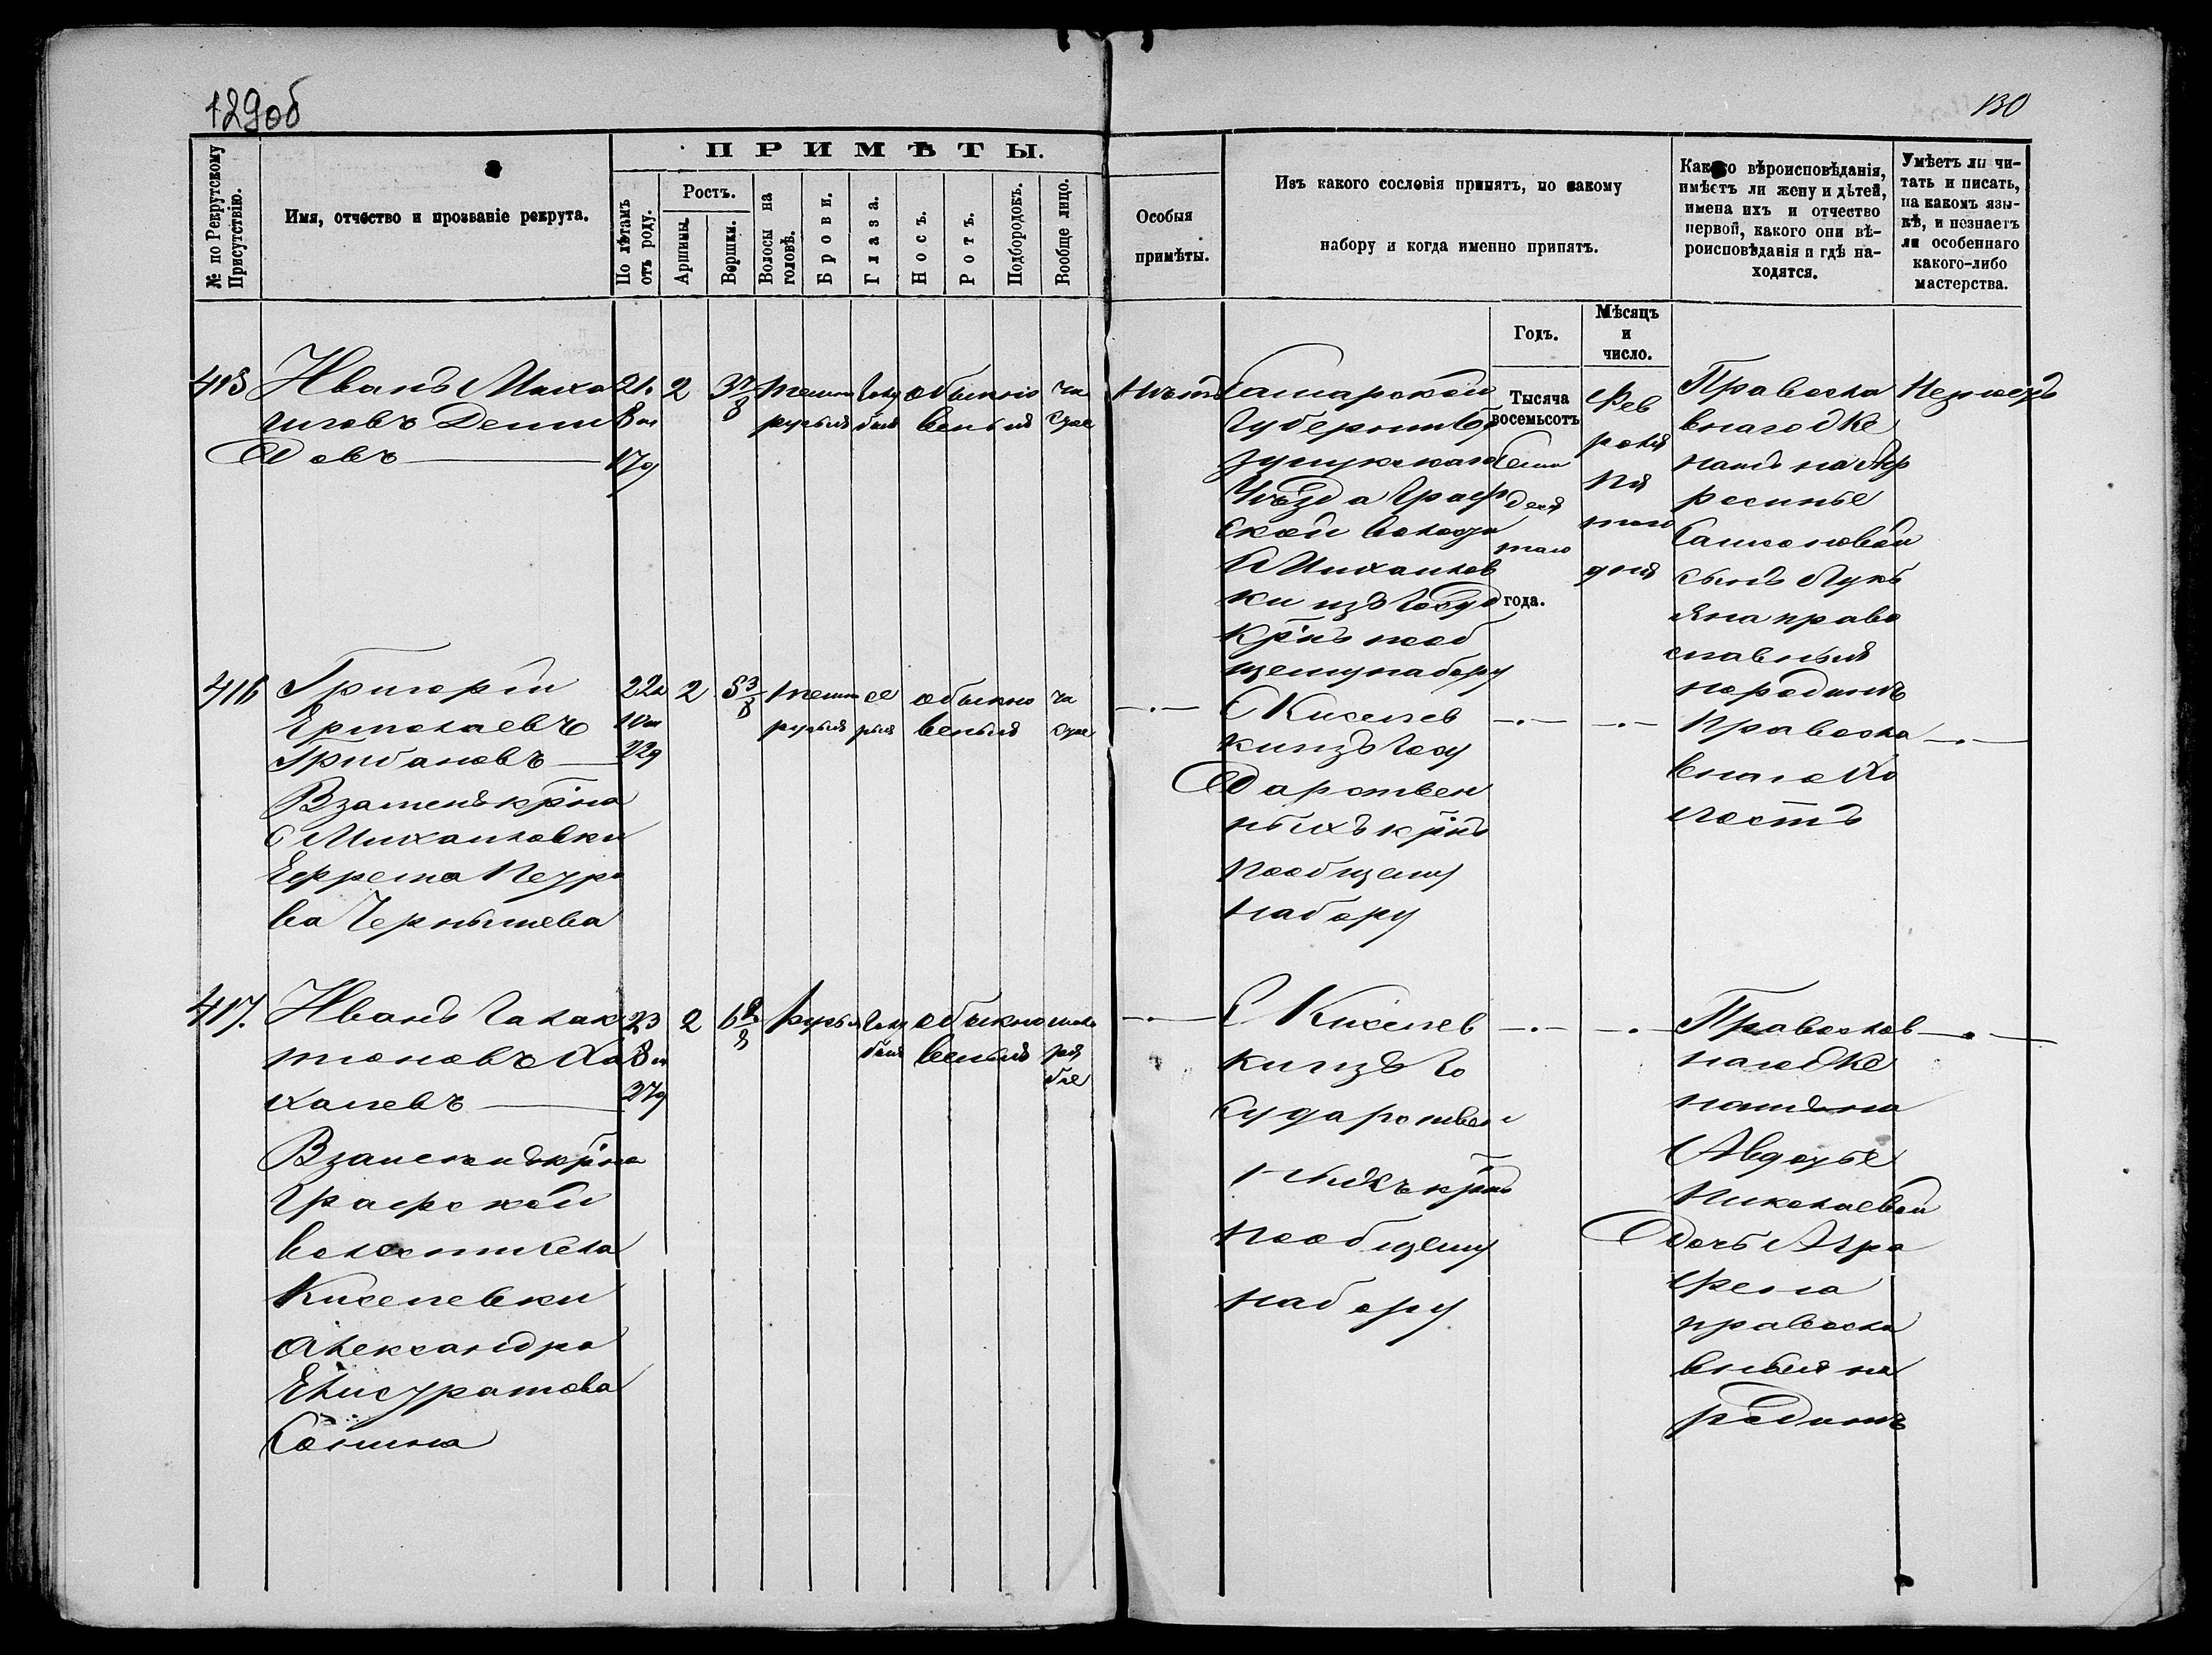 129об
130
№ по Рекрутскому Присутствію.
Имя, отчество и прозваніе рекрута.
ПРИМѢТЫ.
По лѣтамъ отъ роду.
Ростъ.
Аршины.
Вершки.
Волосы на головѣ.
Брови.
Глаза.
Носъ.
Ротъ.
Подбородокъ.
Вообще лицо.
Особыя
примѣты.
Изъ какого сословія принятъ, по какому
набору и когда именно принятъ.
Годъ.
Мѣсяцъ
и
число.
Какого вѣроисповѣданія,
имѣетъ ли жену и дѣтей,
имена ихъ и отчество
первой, какого они вѣ-
роисповѣданія и гдѣ на-
ходятся.
Умѣетъ ли чи-
тать и писать,
на какомъ язы-
кѣ, и незнаетъ
ли особеннаго
какого-либо
мастерства.
Иванъ Миха
иловъ Деми
довъ
21
8м
17д
2
3 7/8
темно
русыя
голу
быя
обыкно
венный
чи
стое
Самарской
Губерніи Бу
зулукскаго
Уѣзда Граф
ской волости
С Михайлов
ки изъ Госуд
крнъ пооб
щему набору
Тысяча
восемьсотъ
Семи
деся
таго
года.
Фев
раля
пя
таго
дня
Правосла
внаго же
натъ на Аф
росинье
Самсоновой
сынъ Лукь
яна право
славныя
народинѣ
416
Григорій
Ермолаевъ
Грибановъ
Взаменъ крна
С Михайловки
Ефрема Петро
ва Чернышева
22л
10м
22д
2
5 3/8
темно
русыя
се
рыя
обыкно
венный
чи
стое
С Киселев
ки изъ Госу
дарствен
ныхъ крнъ
пообщему
набору
Правосла
внаго Хо
лостъ
417.
Иванъ Галак
тионовъ Ха
халевъ
Взаменъ крна
Графской
волости села
Киселевки
Александра
Елисуратова
23
8м
27д
2
русыя
голу
быя
обыкно
венный
мало
ря
бое
С Киселев
ки изъ Го
сударствен
ныхъ крнъ
пообщему
набору
Православ
наго же
натъ на
Авдотье
Николаевой
дочь Агра
фена
правосла
вныя на
родинѣ